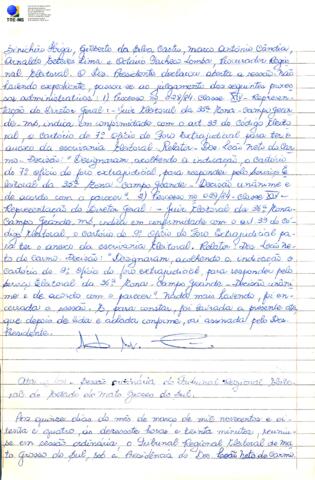 TRE-MS
Higa, Gilberto da Silva Castro, Marco Antônio Cândia,
Arnaldo Esteves Lima e Octávio Pacheco Lomba, Procurador Regio-
nal Eleitoral. O Des. Presidente declarou aberta a sessão não
havendo expediente, passou-se ao julgamento dos seguintes proces-
sos administrativos: 1) Processo nº 028/84 - classe XIV - Represen-
tação do Diretor Geral - Juiz Eleitoral da 35ª Zona - Campo Gran-
de - MS, indica em conformidade com o art. 33 do Código Eleito-
ral, o Cartório do 7º Ofício do Foro Extrajudicial para ter o
anexo da escrivania Eleitoral - Relator - Des. Leão Neto do Car-
mo - Decisão: "Designaram, acolhendo a indicação, o Cartório
do 7º ofício do foro extrajudicial, para responder pelo serviço E-
leitoral da 35ª Zona - Campo Grande - Decisão unânime e
de acordo com o parecer". 2) Processo nº 029/84 - classe XIV -
Representação do Diretor Geral - Juiz Eleitoral da 36ª Zona -
Campo Grande - MS, indica em conformidade com o art. 33 do Có-
digo Eleitoral, o cartório do 9º Ofício do Foro Extrajudicial pa-
ra ter o anexo da escrivania Eleitoral. Relator: Des. Leão Ne-
to do Carmo - Decisão: "Designaram, acolhendo a indicação o
Cartório do 9º ofício do foro extrajudicial, para responder pelo
serviço Eleitoral da 36ª Zona - Campo Grande - Decisão unâni-
me e de acordo com o parecer". Nada mais havendo, foi en-
cerrada a sessão. E, para constar, foi lavrada a presente ata,
que depois de lida e achada conforme, vai assinada pelo Des.
Presidente.
Sessão ordinária do Tribunal Regional Eleito-
ral do Estado de Mato Grosso do Sul.
Aos quinze dias do mês de março de mil novecentos e oi-
tenta e quatro, às dezessete horas e trinta minutos, reuniu-
se em sessão ordinária, o Tribunal Regional Eleitoral de Ma-
to Grosso do Sul, sob a Presidência do Des. Leão Neto do Carmo